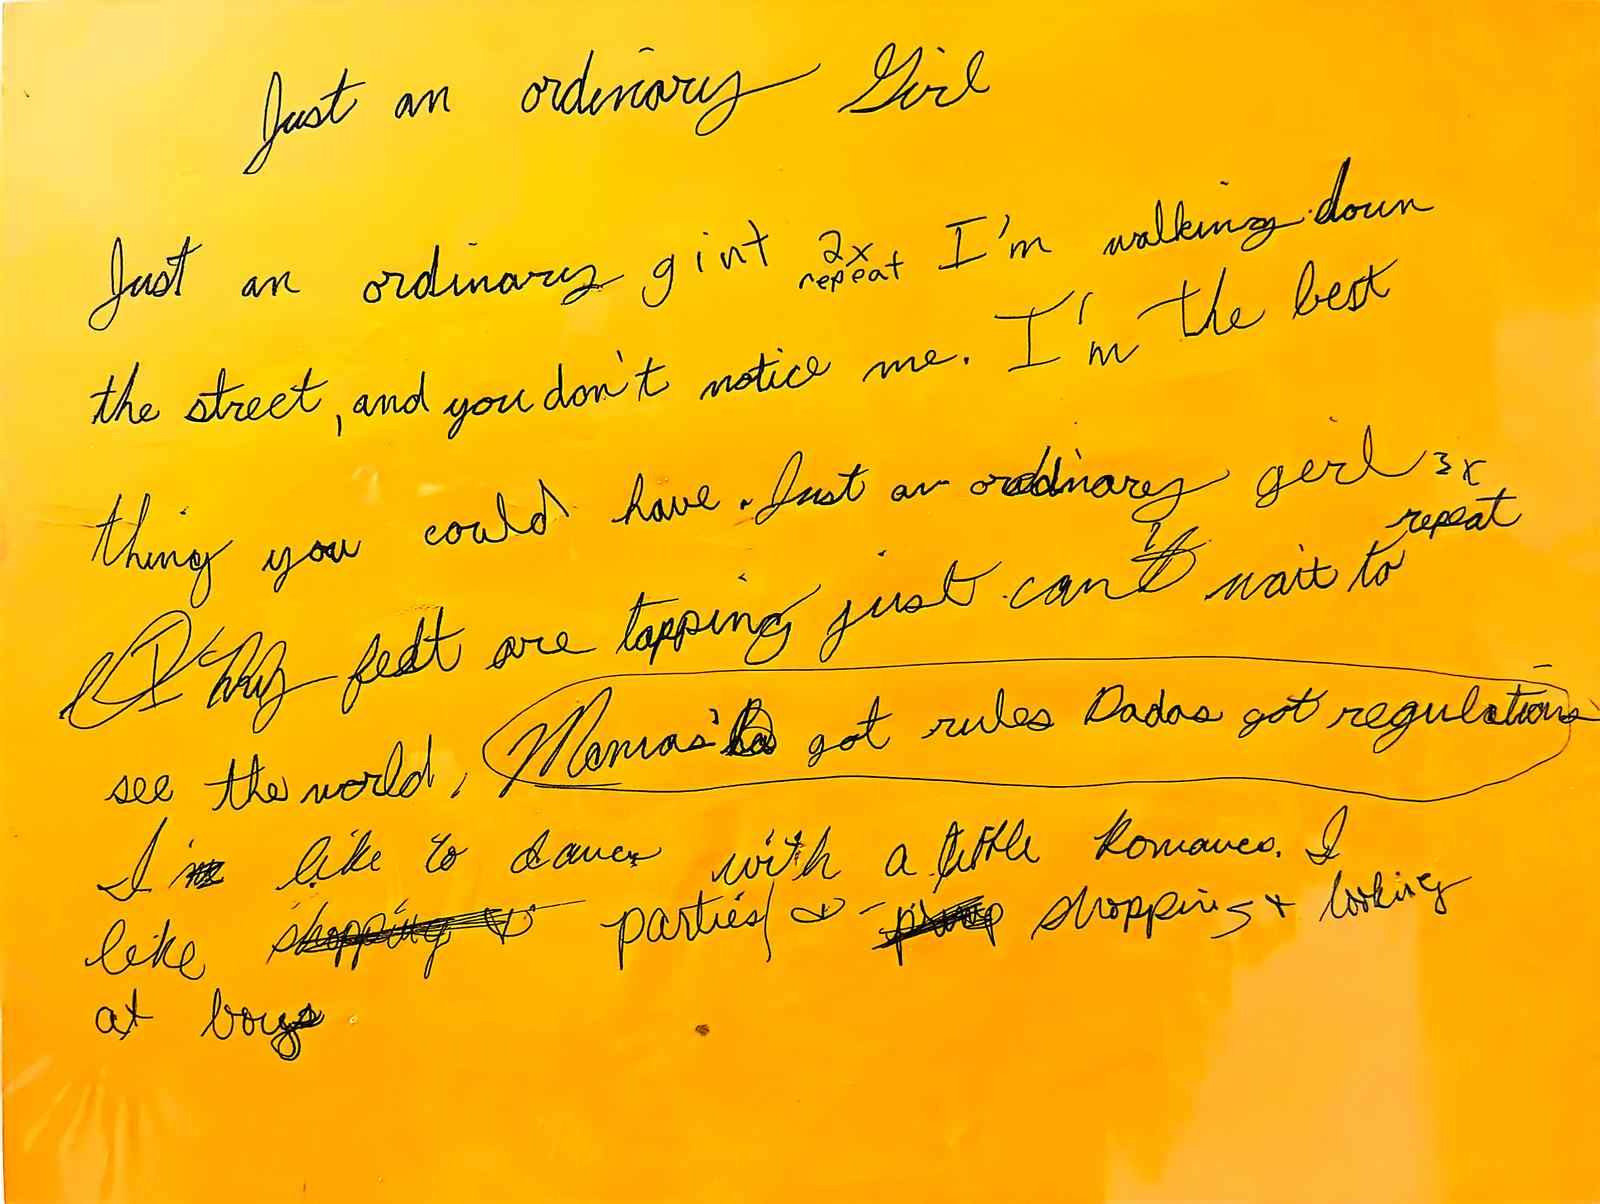 Just an ordinary Girl
Just an ordinary girl 2x repeat I'm walking down
the street, and you don't notice me. I'm the best
thing you could have. Just an ordinary girl 3x repeat
I My feet are tapping just can't wait to
see the world, Mamas got rules Dadas got regulations
I like to dance with a little Romance. I
like shopping & parties & shopping & looking
at boys